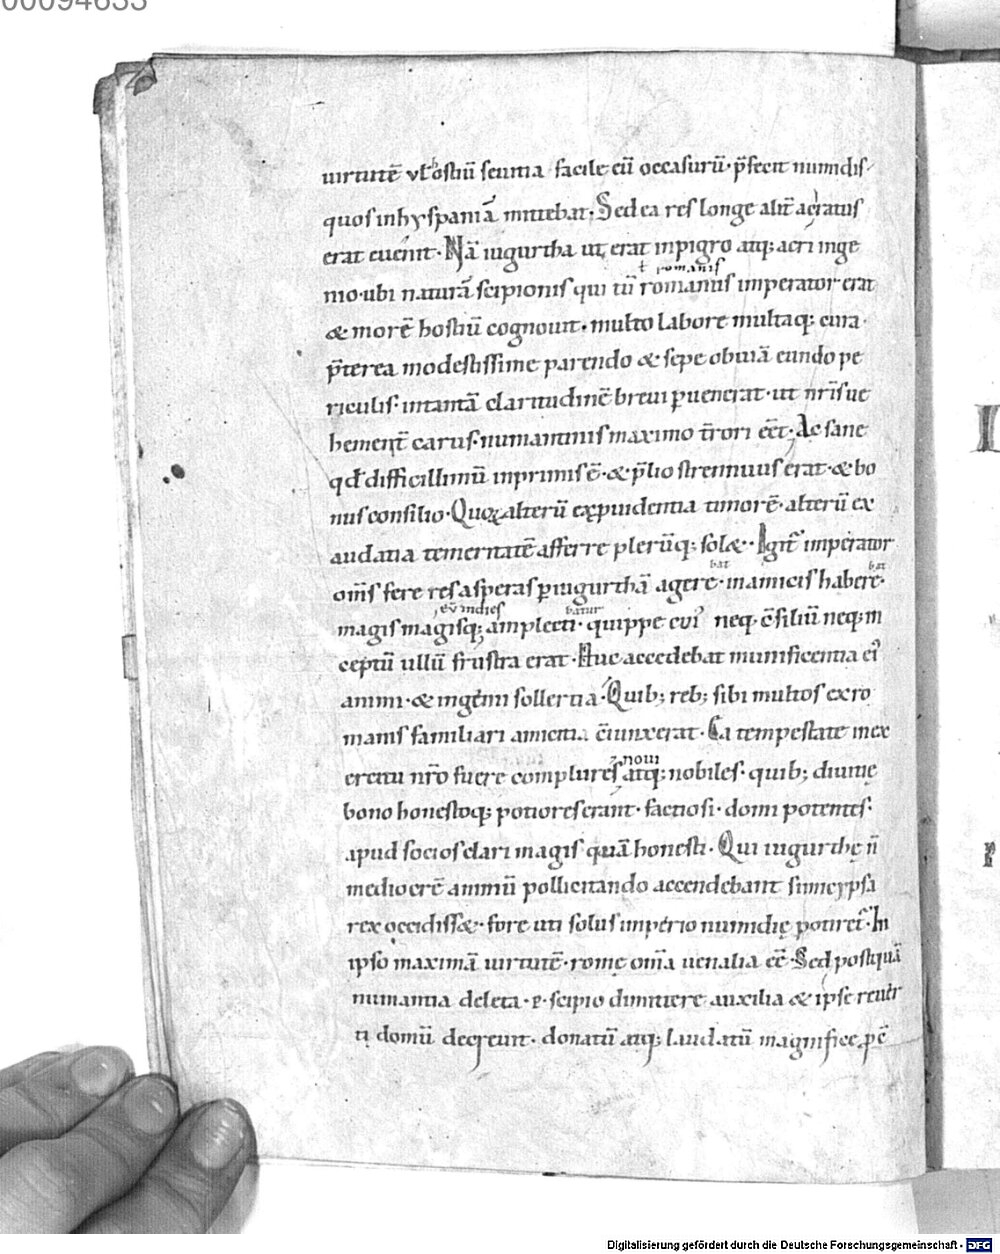 00094633
uirtutē vł hostiū seuitia facile eū occasurū· p̄fecit numidis
quos in hyspaniā mittebat· Sed ea res longe alit̄ ac ratus
erat euenit· Nā iugurtha ut erat inpigro atq; acri inge
ł romanis
nio· ubi naturā scipionis qui tū romanus imperator erat
& morē hostiū cognouit· multo labore multaq; cura·
p̄terea modestissime parendo & sepe obuiā eundo pe
riculis· in tantā claritudinē breui puenerat· ut nr̄is ue
hement̄ carus· numantinis maximo t̄rori eēt· Ac sane
qđ difficillimū inprimis ē· & p̄lio strennuus erat· & bo
nus consilio· Quoꝝ alterū ex puidentia timorē· alterū ex
audatia temeritatē afferre plerūq; solæ· Igit̄ imperator
om̄s fere res asperas p iugurthā agere· in amicis habere·
bat bat
magis magisq; amplecti· quippe cui neq· c̄siliū neq; in
eū indies batur
ceptū ullū frustra erat· Huc accedebat munificentia
animi· & ingenii sollertia· Quib; reb; sibi multos ex ro
manis familiari amicitia c̄iunxerat· Ea tempestate in ex
ercitu nr̄o fuere complures atq; nobiles· quib; diuitię
noui
bono honestoq; potiores erant· factiosi· domi potentes·
apud socios clari magis quā honesti· Qui iugurthę n̄
mediocrē animū pollicitando accendebant si micypsa
rex occidissæ· fore uti solus imperio numidię potiret̄· In
ipso maximā uirtutē· romę om̄ia uenalia eē· Sed postquā
numantia deleta· p· scipio dimittere auxilia & ipse reuer
ti domū decreuit· donatū atq; laudatū magnifice, p c̄
Digitalisierung gefördert durch die Deutsche Forschungsgemeinschaft - DFG